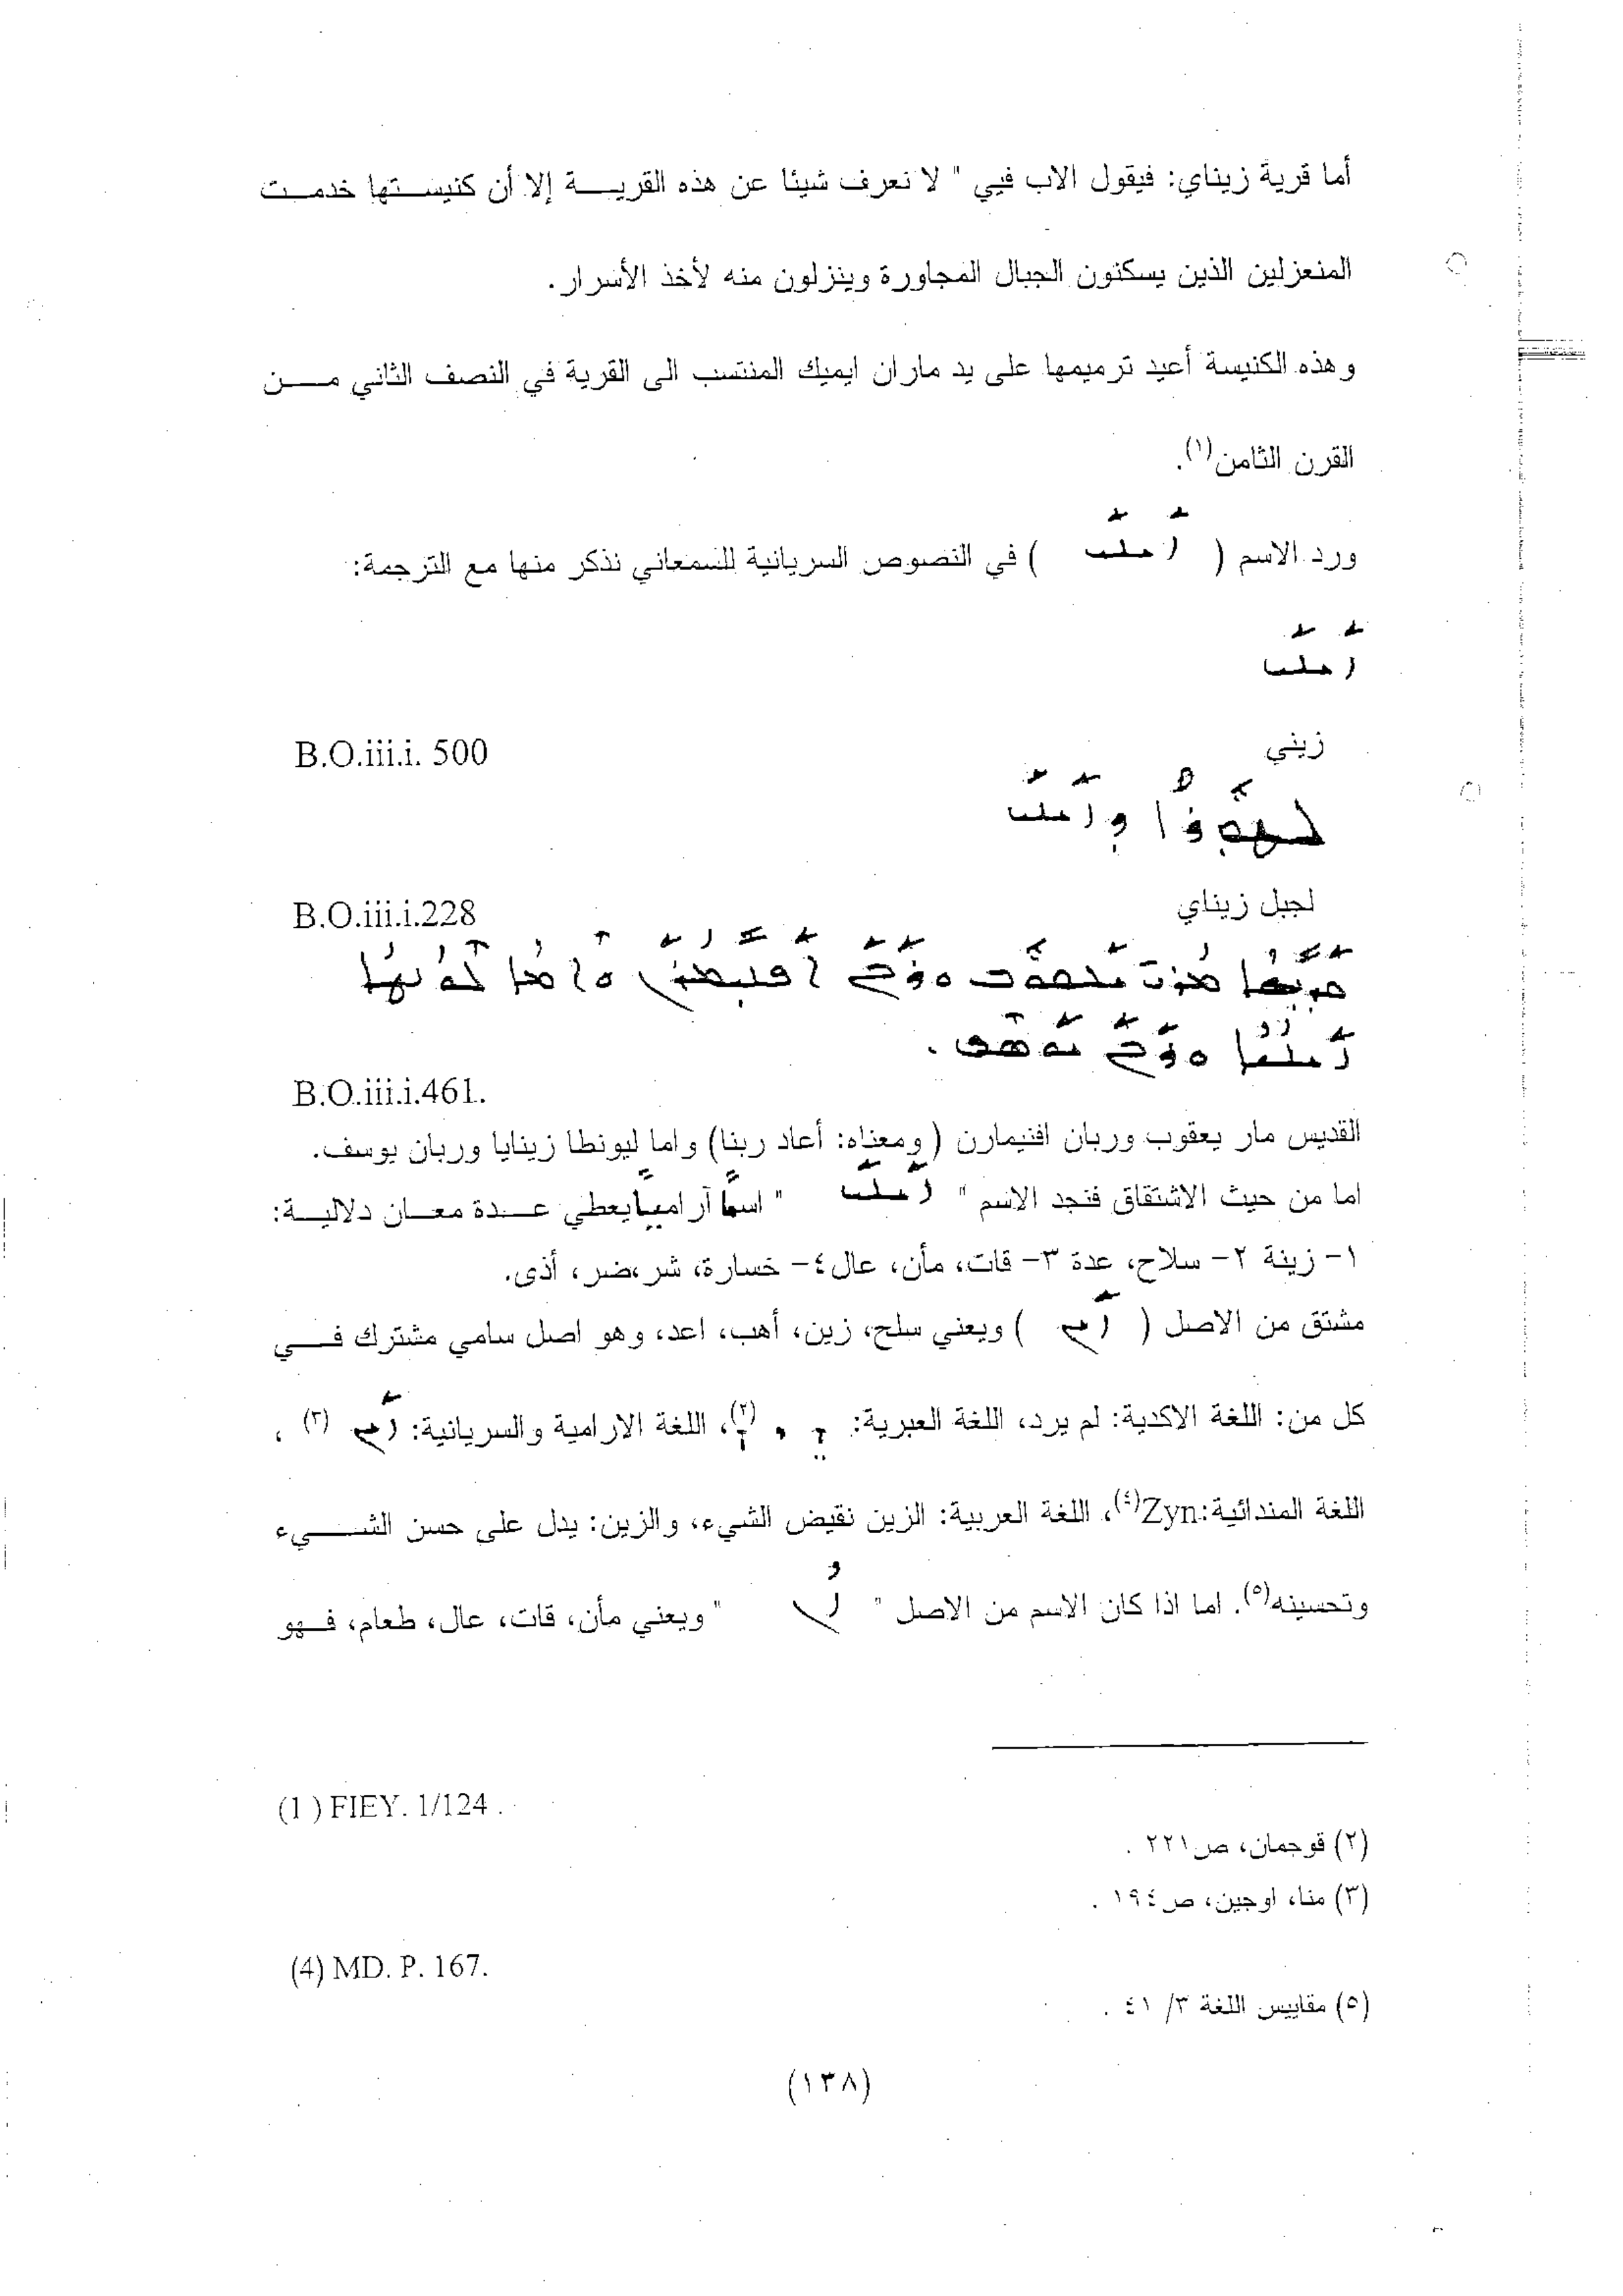 أما قرية زيناي: فيقول الاب فيي " لا نعرف شيئا عن هذه القريـــة إلا أن كنيســتها خدمــت
المنعزلين الذين يسكنون الجبال المجاورة وينزلون منه لأخذ الأسرار.
وهذه الكنيسة أعيد ترميمها على يد ماران ايميك المنتسب الى القرية في النصف الثاني مــن
القرن الثامن(١).
ورد الاسم ( ܙܝܢܝ ) في النصوص السريانية للسمعاني نذكر منها مع الترجمة:
ܙܝܢܝ
زيني B.O.iii.i. 500
ܠܛܘܪܐ ܕܙܝܢܝ
لجبل زيناي B.O.iii.i.228
ܩܕܝܫܐ ܡܪܝ ܝܥܩܘܒ ܘܪܒܢ
ܙܝܢܝܐ ܘܪܒܢ ܝܘܣܦ.
B.O.iii.i.461.
القديس مار يعقوب وربان افنيمارن ( ومعناه: أعاد ربنا) واما ليونطا زينايا وربان يوسف.
اما من حيث الاشتقاق فنجد الاسم " ܙܝܢܝ " اسماً آرامياً يعطي عــدة معــان دلاليــة:
١- زينة ٢- سلاح، عدة ٣- قات، مأن، عال٤- خسارة، شر،ضر، أذى.
مشتق من الاصل ( ܙܝܢ ) ويعني سلح، زين، أهب، اعد، وهو اصل سامي مشترك فــي
كل من: اللغة الاكدية: لم يرد، اللغة العبرية: (٢)، اللغة الارامية والسريانية: ܙܝܢ (٣) ،
اللغة المندائية:Zyn(٤)، اللغة العربية: الزين نقيض الشيء، والزين: يدل على حسن الشــيء
وتحسينه(٥). اما اذا كان الاسم من الاصل " ܙܢ " ويعني مأن، قات، عال، طعام، فــهو
(1 ) FIEY. 1/124 .
(٢) قوجمان، ص٢٢١ .
(٣) منا، اوجين، ص١٩٤ .
(4) MD. P. 167.
(٥) مقاييس اللغة ٣/ ٤١ .
(١٣٨)